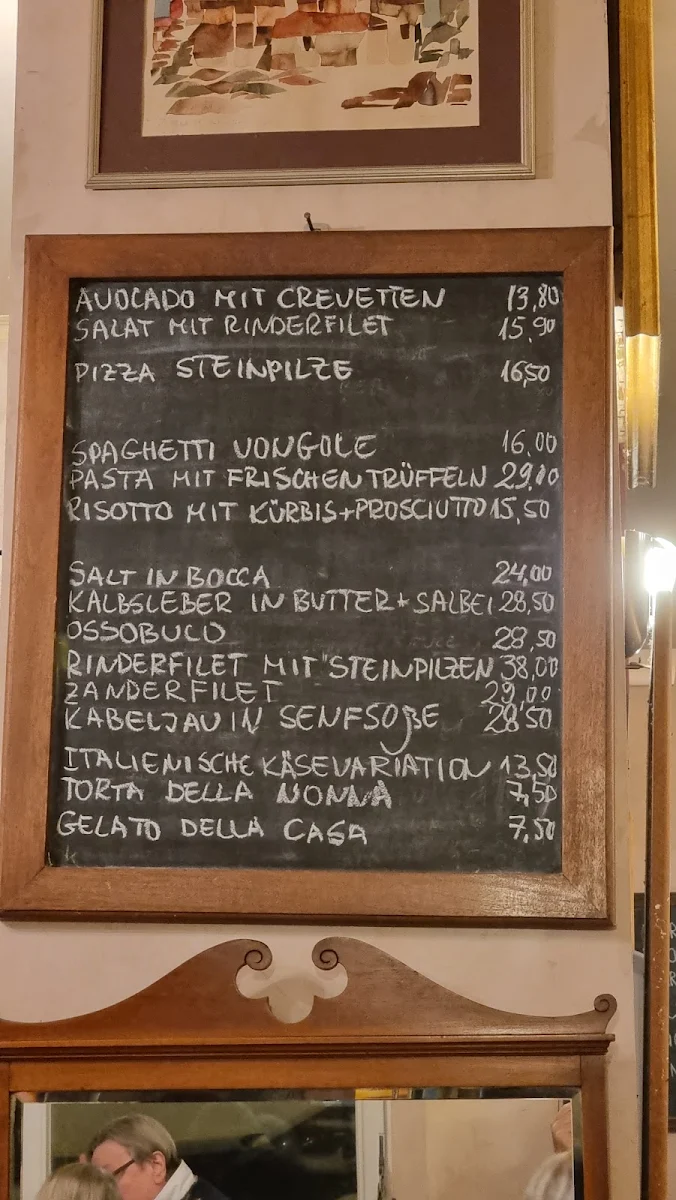 AVOCADO MIT CREVETTEN 13,80
SALAT MIT RINDERFILET 15,90
PIZZA STEINPILZE 16,50
SPAGHETTI VONGOLE 16.00
PASTA MIT FRISCHEN TRÜFFELN
RISOTTO MIT KÜRBIS+PROSCIUTTO 15,50
SALT IN BOCCA 24,00
KALBSLEBER IN BUTTER + SALBEI 28,50
OSSOBUCO 28,50
RINDERFILET MIT STEINPILZEN 38,00
ZANDERFILET 29,00
KABELJAU IN SENFSOßE 28,50
ITALIENISCHE KÄSEVARIATION 13,50
TORTA DELLA NONNA 7,50
GELATO DELLA CASA 7,50